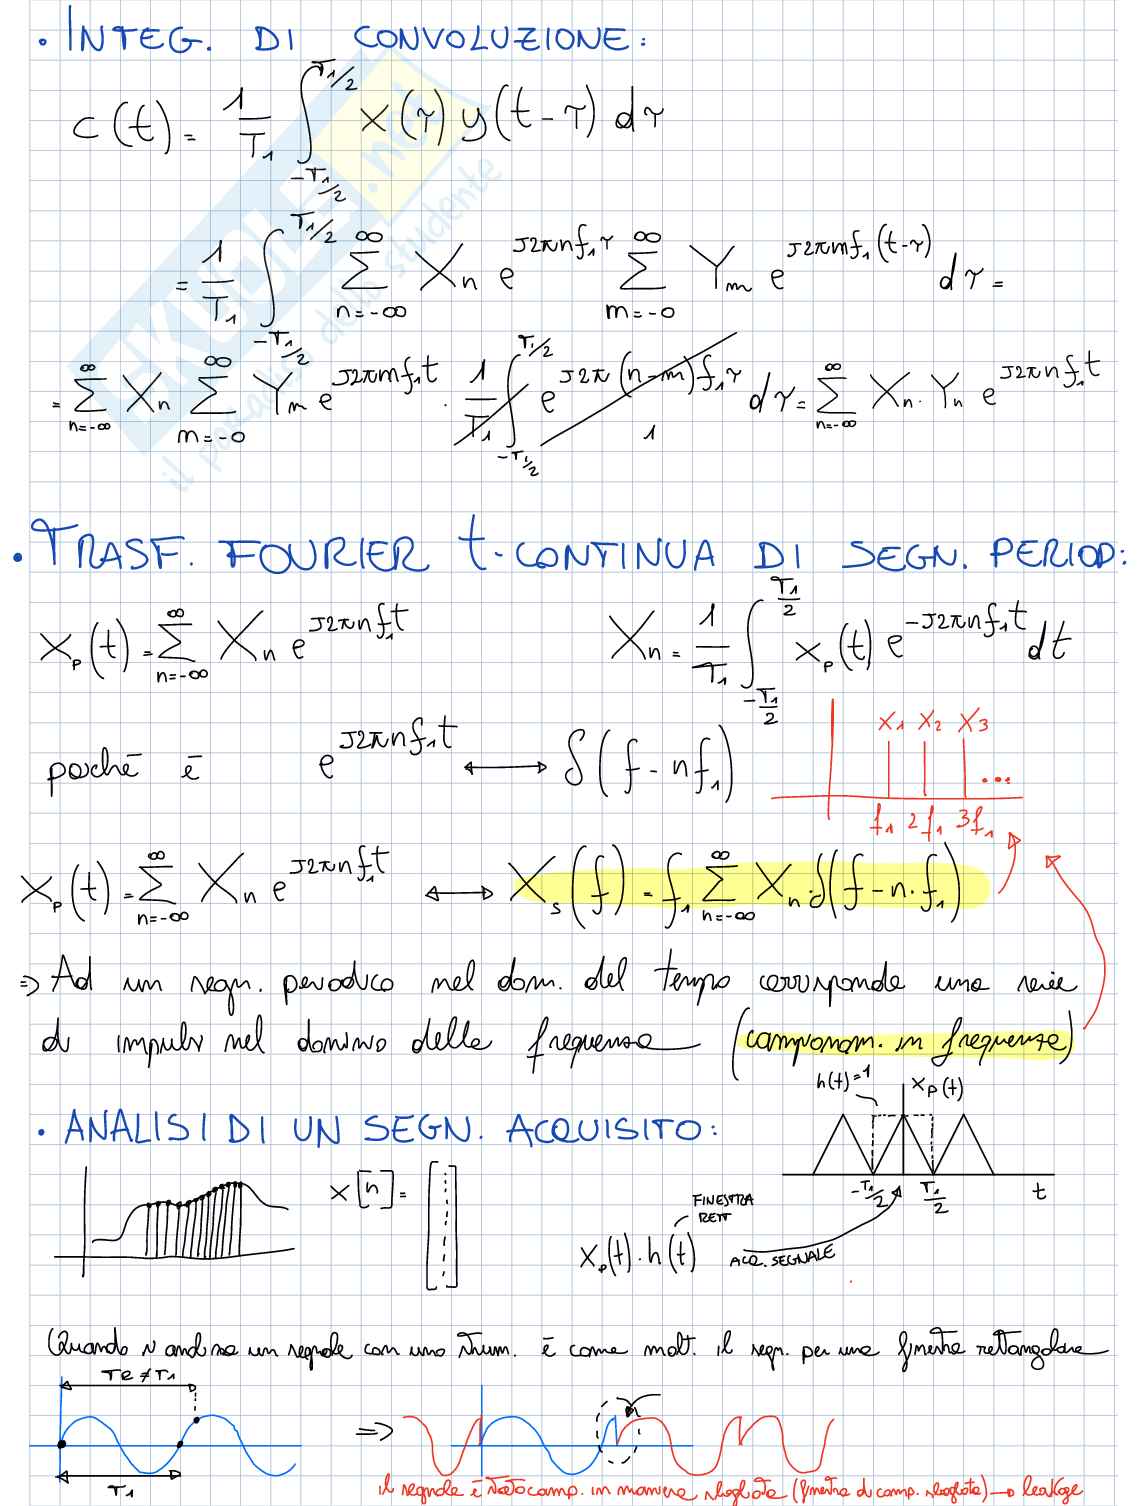 • INTEG. DI CONVOLUZIONE:
c(t) = 1/T₁ ∫_{-T₁/2}^{T₁/2} x(τ) y(t-τ) dτ
= 1/T₁ ∫_{-T₁/2}^{T₁/2} ∑_{n=-∞}^{∞} Xₙ e^{J2πnf₁τ} ∑_{m=-0}^{∞} Yₘ e^{J2πmf₁(t-τ)} dτ =
= ∑_{n=-∞}^{∞} Xₙ ∑_{m=-0}^{∞} Yₘ e^{J2πmf₁t} · 1/T₁ ∫_{-T₁/2}^{T₁/2} e^{J2π(n-m)f₁τ} dτ = ∑_{n=-∞}^{∞} Xₙ · Yₙ e^{J2πnf₁t}
1
SKUOLA.net
il paradiso dello studente
• TRASF. FOURIER t-CONTINUA DI SEGN. PERIOD:
xₚ(t) = ∑_{n=-∞}^{∞} Xₙ e^{J2πnf₁t} Xₙ = 1/T₁ ∫_{-T₁/2}^{T₁/2} xₚ(t) e^{-J2πnf₁t} dt
X₁ X₂ X₃
...
poiché è e^{J2πnf₁t} ⟷ δ(f - nf₁)
f₁ 2f₁ 3f₁
xₚ(t) = ∑_{n=-∞}^{∞} Xₙ e^{J2πnf₁t} ⟷ Xₛ(f) = f₁ ∑_{n=-∞}^{∞} Xₙ·δ(f - n·f₁)
=> Ad un segn. periodico nel dom. del tempo corrisponde una serie
di impulsi nel dominio delle frequenze (campionam. in frequenza)
h(t)=1 xₚ(t)
• ANALISI DI UN SEGN. ACQUISITO:
x[n] = [ ]
-T₁/2 T₁/2 t
FINESTRA
RETT
xₚ(t)·h(t) ACQ. SEGNALE
Quando si analizza un segnale con uno strum. è come molt. il segn. per una finestra rettangolare
TR ≠ T₁
=>
T₁
il segnale è stato camp. in maniera sbagliata (finestra di camp. sbagliata) → leakage